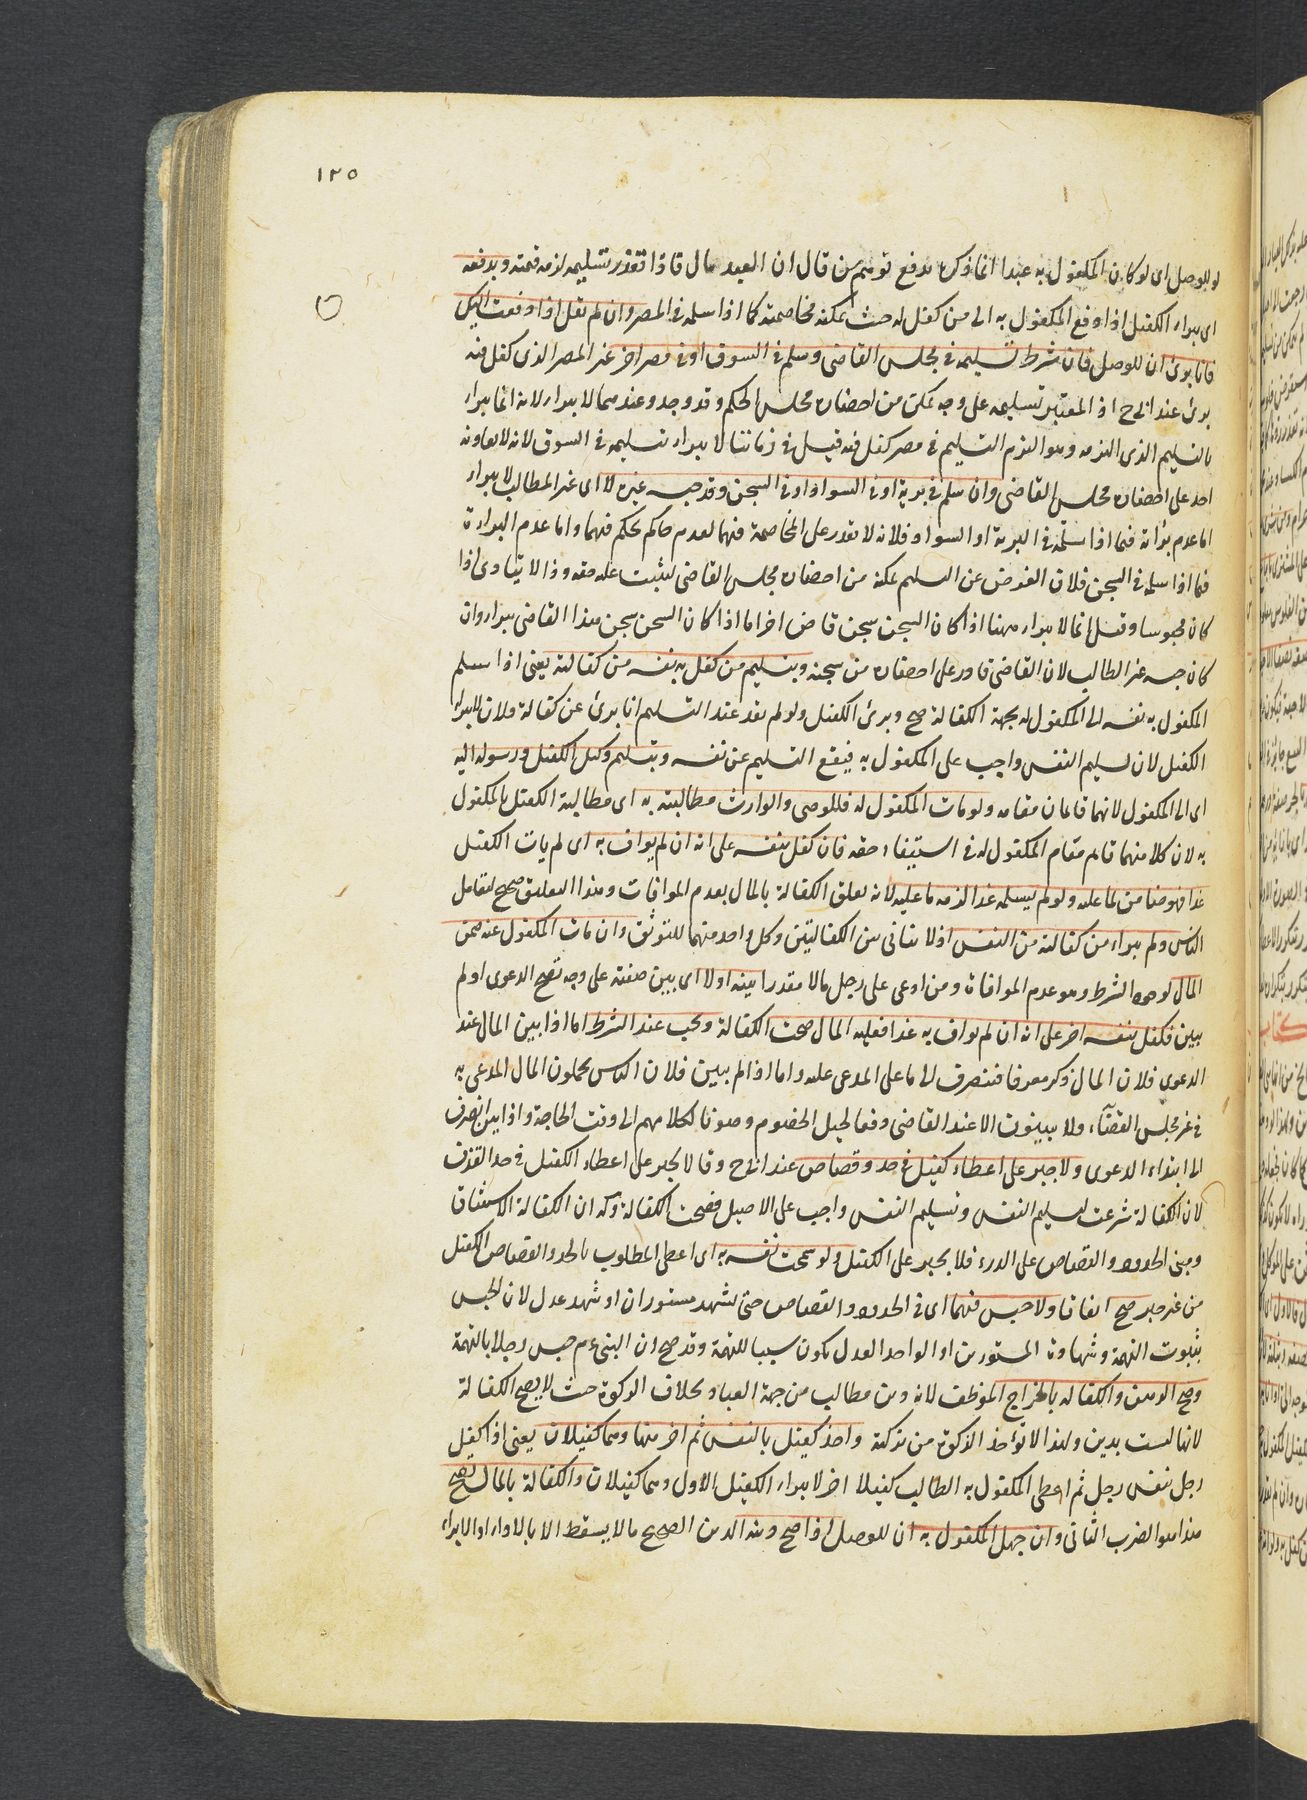 ١٢٥
لو للوصل اى لو كان المكفول به عبدا انما ذكره لدفع توهم من قال ان العبد مال فاذا تعذر تسليمه لزمه قيمته وبدفعه
اى يبراء الكفيل اذا دفع المكفول به الى من كفل له حيث يمكنه مخاصمته كما اذا سلمه فى المصر وان لم يقل اذا دفعت اليك
فانا برئ ان للوصل فان شرط تسليمه فى مجلس القاضى وسلم فى السوق او فى مصر اخر غير المصر الذى كفل فيه
برئ عند ابى ح اذ المعتبر تسليمه على وجه يمكن من احضاره مجلس الحكم وقد وجد وعندهما لا يبراء لانه انما يبراء
بالتسليم الذى التزمه وهو التزم التسليم فى مصر كفل فيه قيل فى زماننا لا يبراء بتسليمه فى السوق لانه لا يعاونه
احد على احضاره مجلس القاضى وان سلم فى برية او فى السواد او فى السجن وقد حبسه غيره لا اى غير المطالب لا يبراء
اما عدم براته فيما اذا سلمه فى البرية او السواد فلانه لا يقدر على المخاصمة فيهما لعدم حاكم يحكم فيهما واما عدم البراءة
فيما اذا سلمه فى السجن فلان الغرض من التسليم تمكنه من احضاره مجلس القاضى ليثبت عليه حقه وذا لا يتادى اذا
كان محبوسا وقيل انما لا يبراء ههنا اذا كان السجن سجن قاض اخر اما اذا كان السجن سجن هذا القاضى يبراء وان
كان حبسه غير الطالب لان القاضى قادر على احضاره من سجنه وبتسليم من كفل به نفسه من كفالته يعنى اذا سلم
المكفول به نفسه الى المكفول له بجهة الكفالة صح وبرئ الكفيل ولو لم يقد عند التسليم انا برئ عن كفالة فلان لا يبراء
الكفيل لان تسليم النفس واجب على المكفول به فيقع التسليم عن نفسه وبتسليم وكيل الكفيل ورسوله اليه
اى الى المكفول لانهما قائمان مقامه ولو مات المكفول له فللوصى والوارث مطالبته به اى مطالبة الكفيل بالمكفول
به لان كلا منهما قائم مقام المكفول له فى استيفاء حقه فان كفل بنفسه على انه ان لم يواف به اى لم يات الكفيل
غدا فهو ضامن لما عليه ولو لم يسلمه غدا لزمه ما عليه لانه تعلق الكفالة بالمال بعدم الموافات وهذا التعليق صحيح لتعامل
الناس ولم يبراء من كفالته من النفس اذ لا تنافى بين الكفالتين وكل واحد منهما للتوثق وان مات المكفول عنه ضمن
المال لوجود الشرط وهو عدم الموافاة ومن ادعى على رجل مالا مقدرا بينه اولا اى بين صفته على وجه تصح الدعوى او لم
يبين فكفل بنفسه اخر على انه ان لم يواف به غدا فعليه المال صحت الكفالة ويجب عند الشرط اما اذا بين المال عند
الدعوى فلان المال ذكر معرفا فينصرف الى ما على المدعى عليه واما اذا لم يبين فلان الناس يجملون المال المدعى به
فى غير مجلس القضاء ولا يبينون الا عند القاضى دفعا لحيل الخصوم وصونا لكلامهم الى وقت الحاجة واذا بين انصرف
الى ابتداء الدعوى ولا جبر على اعطاء كفيل فى حد وقصاص عند ابى ح وقالا يجبر على اعطاء الكفيل فى حد القذف
لان الكفالة شرعت لتسليم النفس وتسليم النفس واجب على الاصيل فصحت الكفالة وله ان الكفالة للاستيثاق
ومبنى الحدود والقصاص على الدرء فلا يجبر على الكفيل ولو سمحت نفسه به اى اعطى المطلوب بالحد والقصاص الكفيل
من غير جبر صح اتفاقا ولا حبس فيهما اى فى الحدود والقصاص حتى يشهد مستوران او شهد عدل لان الحبس
بثبوت التهمة وشهادة المستورين او الواحد العدل يكون سببا للتهمة وقد صح ان النبى ع م حبس رجلا بالتهمة
وصح الرهن والكفالة بالخراج الموظف لانه دين مطالب من جهة العباد بخلاف الزكوة حيث لا يصح الكفالة
لانها ليست بدين ولهذا لا تؤخذ الزكوة من تركته واخذ كفيل بالنفس ثم اخر منها وهما كفيلان يعنى اذا كفل
رجل نفس رجل ثم اعطى المكفول به الطالب كفيلا اخر لا يبراء الكفيل الاول وهما كفيلان والكفالة بالمال تصح
هذا هو الضرب الثانى وان جهل المكفول به ان للوصل اذا صح دينه الدين الصحيح ما لا يسقط الا بالاداء او الابراء